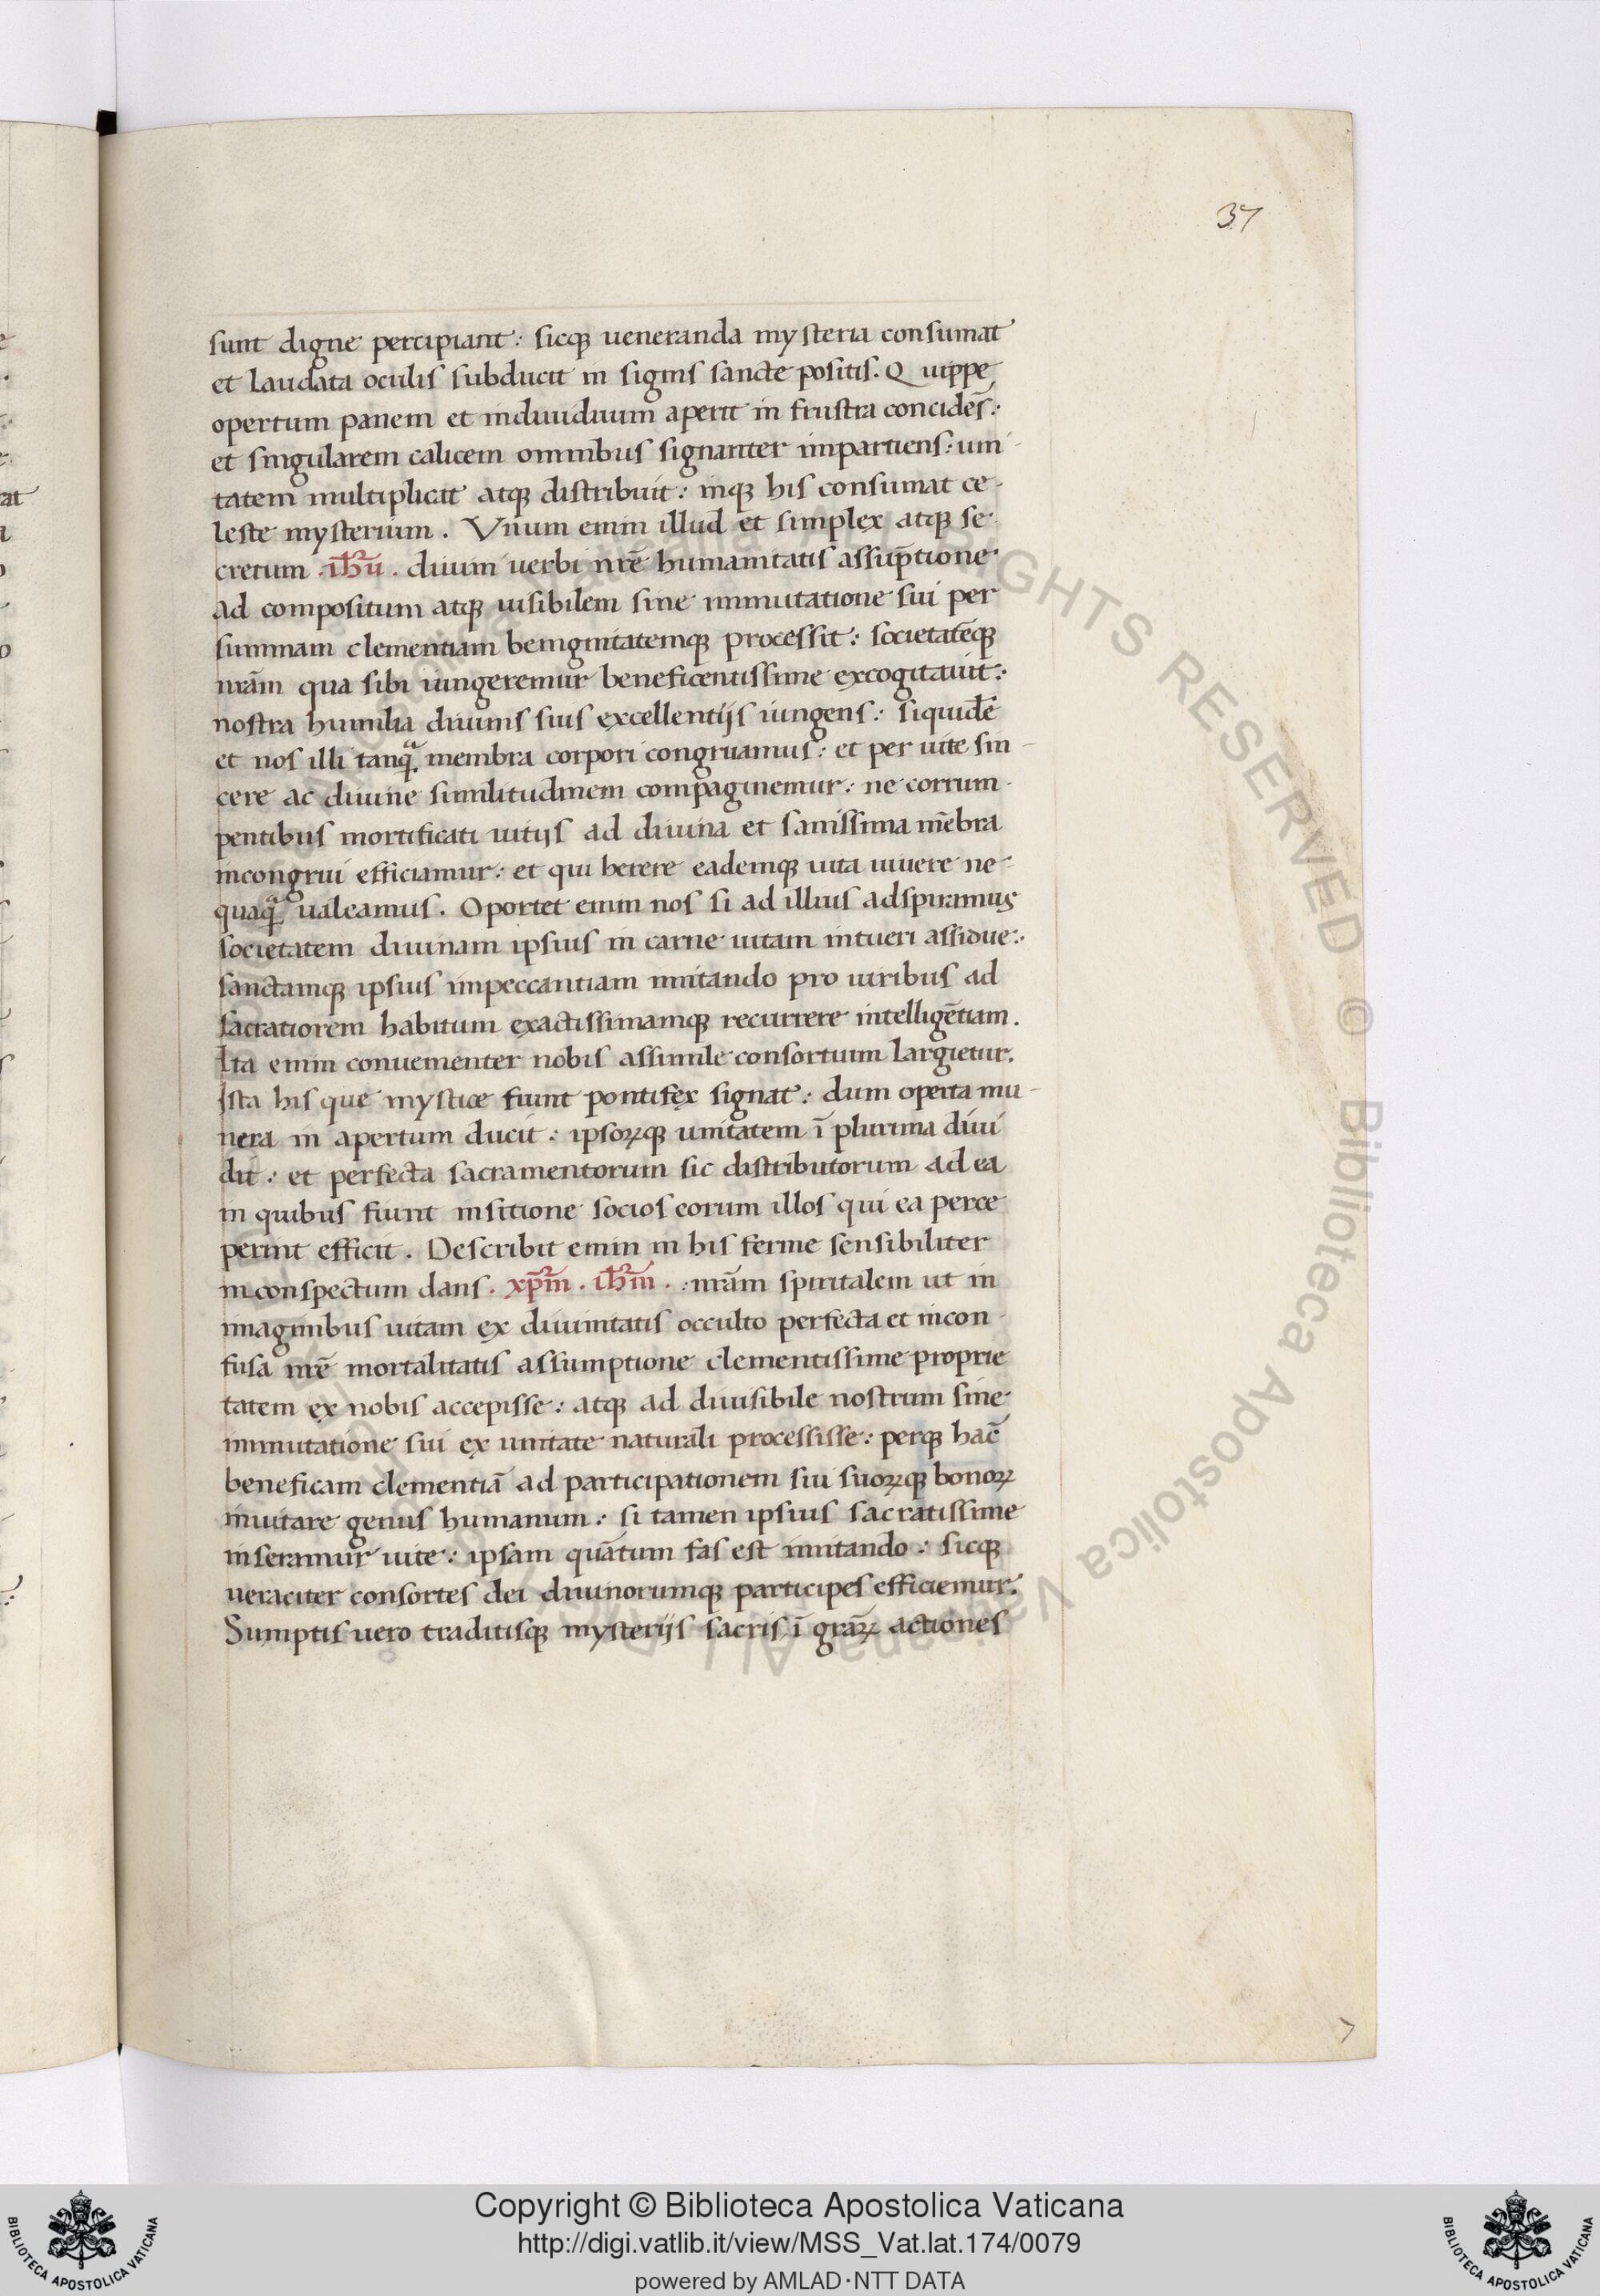 37
sunt digne percipiant: sicqꝫ ueneranda mysteria consumat
et laudata oculis subducit in signis sancte positis. Quippe
opertum panem et indiuiduum aperit in frustra concidēs:
et singularem calicem omnibus signanter impartiens: uni-
tatem multiplicat atqꝫ distribuit: inqꝫ his consumat ce-
leste mysterium. Vnum enim illud et simplex atqꝫ se-
cretum .ih̄u. diuini uerbi nr̄e humanitatis assup̄tione
ad compositum atqꝫ uisibilem sine immutatione sui per
summam clementiam benignitatemqꝫ processit: societatēqꝫ
nr̄am qua sibi iungeremur beneficentissime excogitauit:
nostra humilia diuinis suis excellentijs iungens: siquidē
et nos illi tanqͣ membra corpori congruamus: et per uite sin-
cere ac diuine similitudinem compaginemur: ne corrum-
pentibus mortificati uitijs ad diuina et sanissima mēbra
incongrui efficiamur: et qui herere eademqꝫ uita uiuere ne-
quaqͣ ualeamus. Oportet enim nos si ad illius adspiramus
societatem diuinam ipsius in carne uitam intueri assidue:
sanctamqꝫ ipsius impeccantiam imitando pro uiribus ad
sacratiorem habitum exactissimamqꝫ recurrere intelligētiam.
Ita enim conuenienter nobis assimile consortium largietur.
Ista his que mystice fiunt pontifex signat: dum operta mu-
nera in apertum ducit: ipsoꝝqꝫ unitatem ī plurima diui
dit: et perfecta sacramentorum sic distributorum ad ea
in quibus fiunt insitione socios eorum illos qui ea perce
perint efficit. Describit enim in his ferme sensibiliter
in conspectum dans. xp̄m. ih̄m. nr̄am spiritalem ut in
imaginibus uitam ex diuinitatis occulto perfecta et incon-
fusa nr̄e mortalitatis assumptione clementissime proprie
tatem ex nobis accepisse: atqꝫ ad diuisibile nostrum sine
immutatione sui ex unitate naturali processisse: perqꝫ hāc
beneficam clementiā ad participationem sui suoꝝqꝫ bonoꝝ
inuitare genus humanum: si tamen ipsius sacratissime
inseramur uite: ipsam quātum fas est imitando: sicqꝫ
ueraciter consortes dei diuinorumqꝫ participes efficiemur.
Sumptis uero traditisqꝫ mysterijs sacris ī gr̄aꝝ actiones
Copyright © Biblioteca Apostolica Vaticana
http://digi.vatlib.it/view/MSS_Vat.lat.174/0079
powered by AMLAD·NTT DATA
BIBLIOTECA APOSTOLICA VATICANA
BIBLIOTECA APOSTOLICA VATICANA